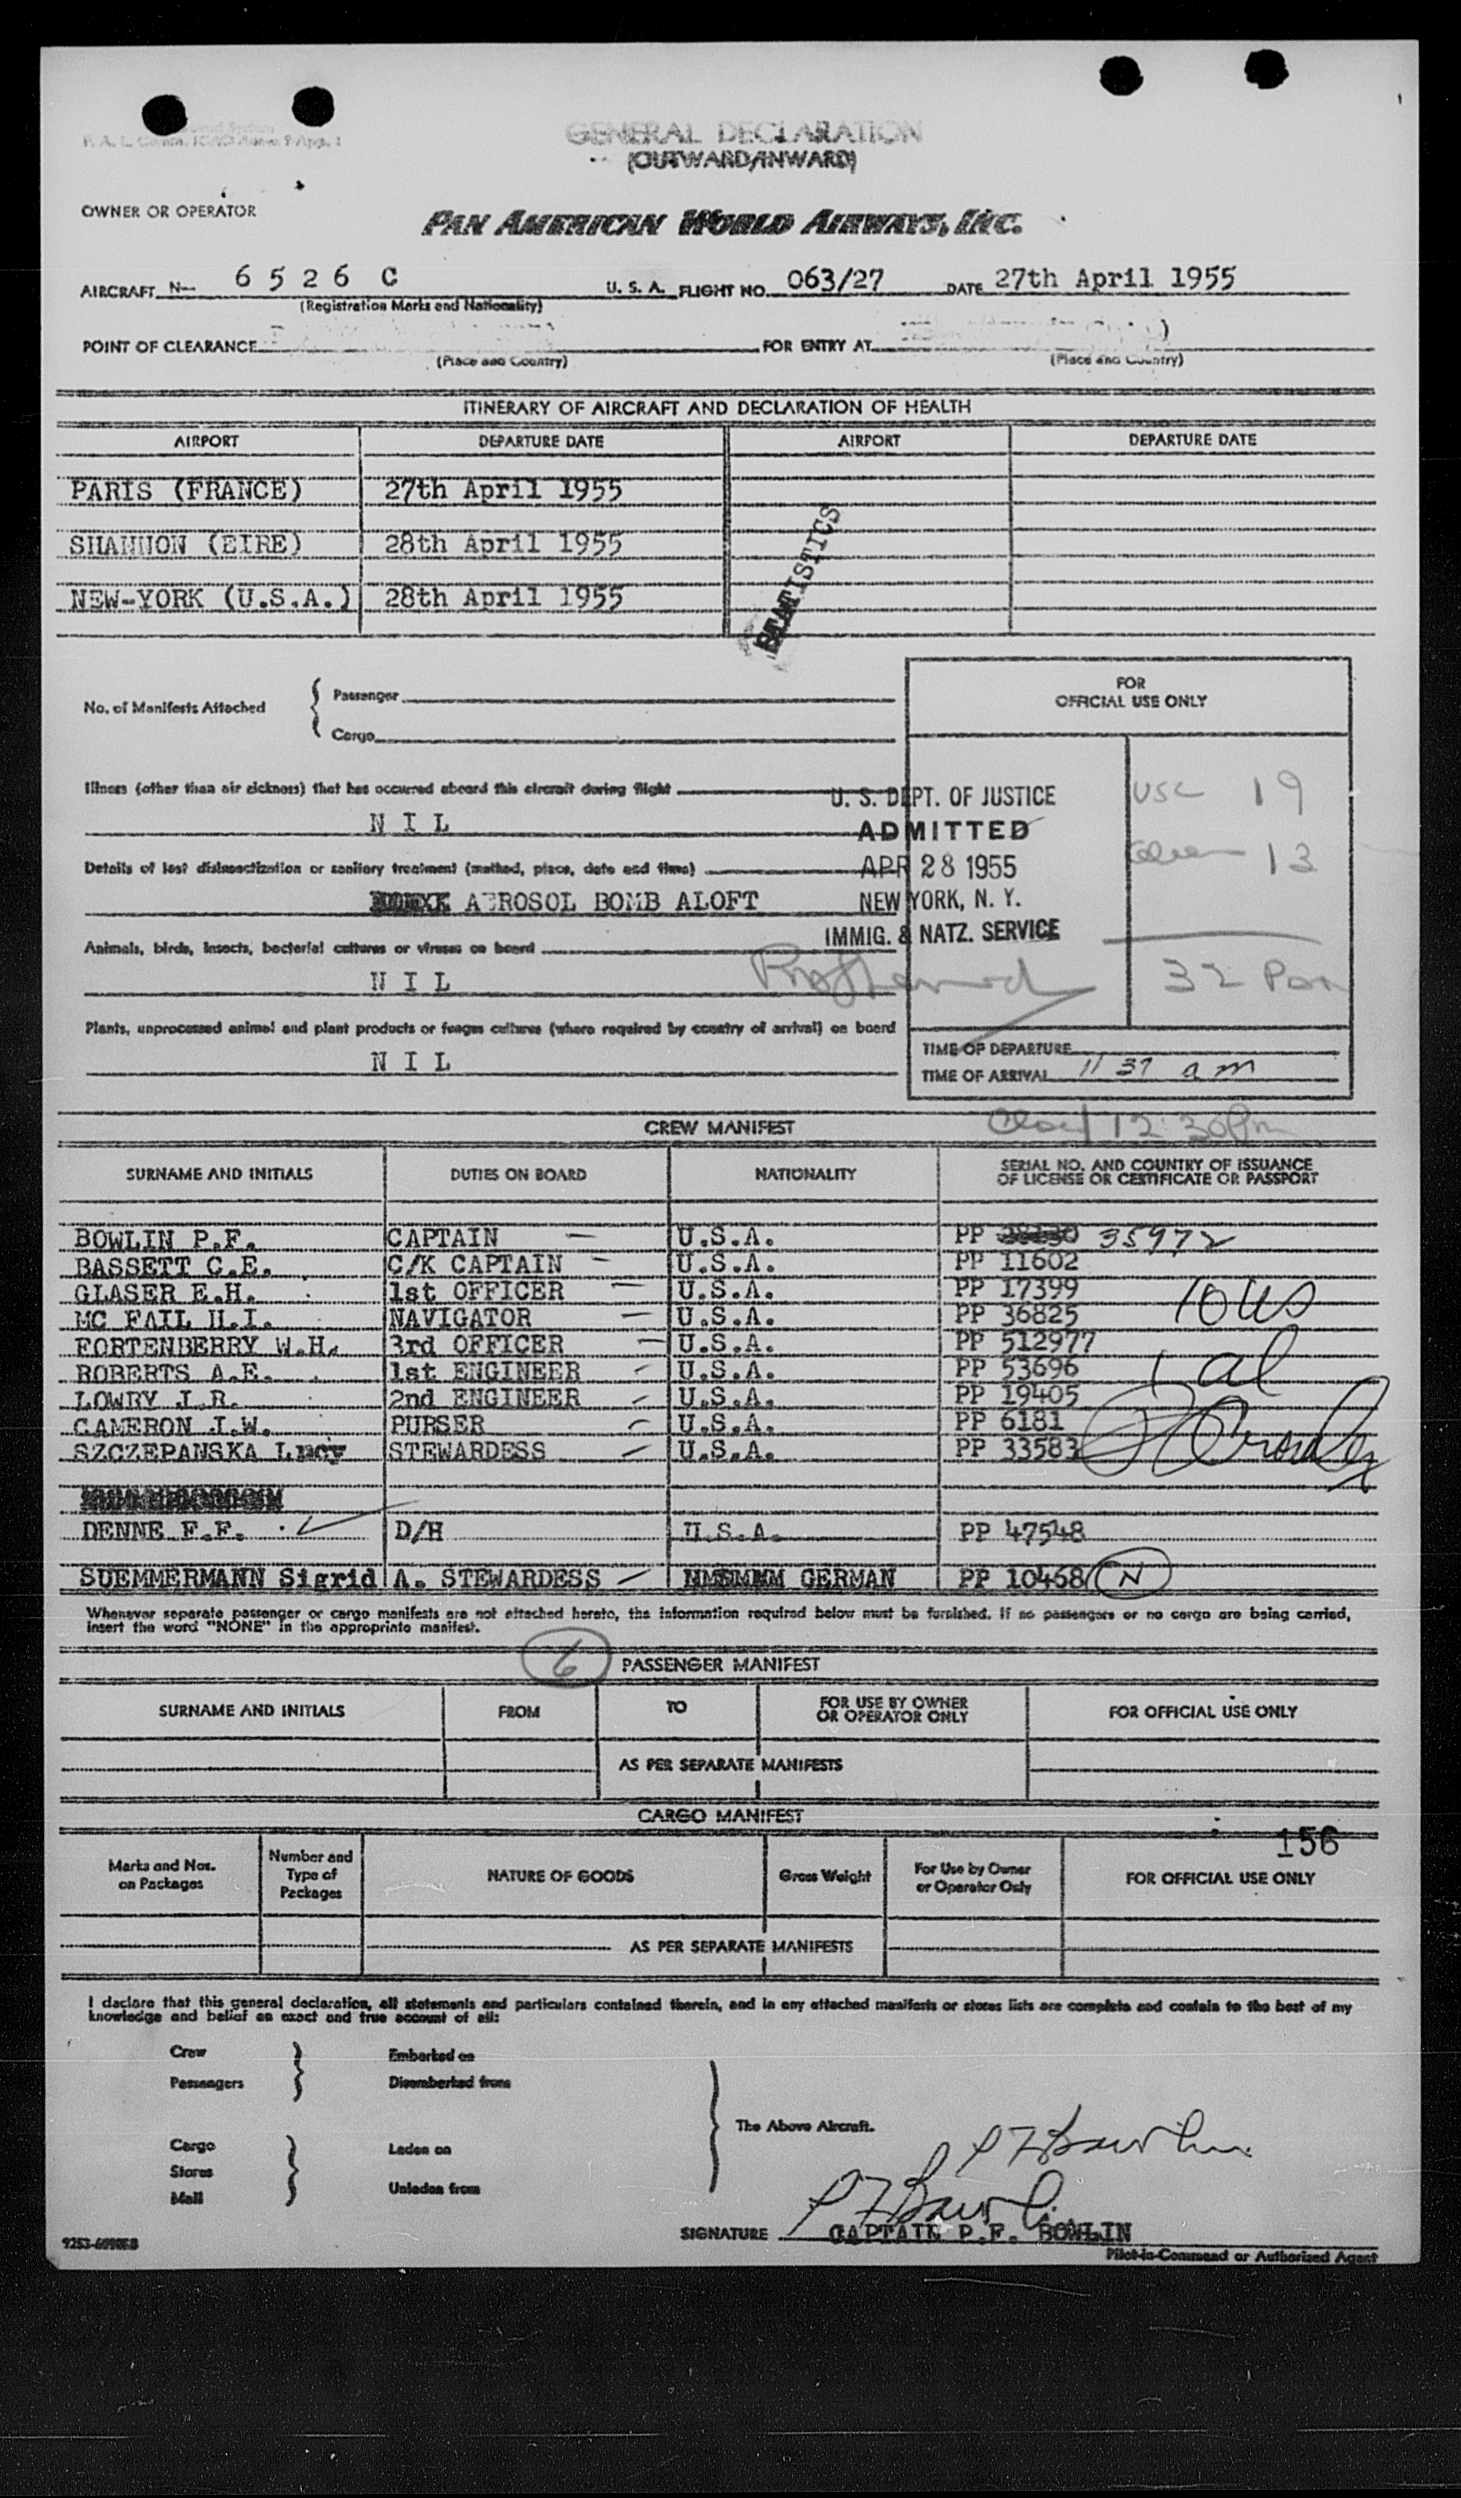 GENERAL DECLARATION
(OUTWARD/INWARD)
OWNER OR OPERATOR
PAN AMERICAN WORLD AIRWAYS, INC.
AIRCRAFT N- 6 5 2 6 C U. S. A. FLIGHT NO. 063/27 DATE 27th April 1955
(Registration Marks and Nationality)
POINT OF CLEARANCE FOR ENTRY AT
(Place and Country) (Place and Country)
ITINERARY OF AIRCRAFT AND DECLARATION OF HEALTH
AIRPORT DEPARTURE DATE AIRPORT DEPARTURE DATE
PARIS (FRANCE) 27th April 1955
SHANNON (EIRE) 28th April 1955
NEW-YORK (U.S.A.) 28th April 1955
STATISTICS
FOR
OFFICIAL USE ONLY
No. of Manifests Attached { Passenger
Cargo
Illness (other than air sickness) that has occurred aboard this aircraft during flight
N I L
U. S. DEPT. OF JUSTICE
ADMITTED
APR 28 1955
NEW YORK, N. Y.
IMMIG. & NATZ. SERVICE
USC 19
13
32 Pan
Details of last disinsectization or sanitary treatment (method, place, date and time)
AEROSOL BOMB ALOFT
Animals, birds, insects, bacterial cultures or viruses on board
N I L
Plants, unprocessed animal and plant products or fungus cultures (where required by country of arrival) on board
N I L
TIME OF DEPARTURE
TIME OF ARRIVAL 11 37 am
12:30 Pm
CREW MANIFEST
SURNAME AND INITIALS DUTIES ON BOARD NATIONALITY SERIAL NO. AND COUNTRY OF ISSUANCE
OF LICENSE OR CERTIFICATE OR PASSPORT
BOWLIN P.F. CAPTAIN - U.S.A. PP 35972
BASSETT C.E. C/K CAPTAIN - U.S.A. PP 11602
GLASER E.H. 1st OFFICER - U.S.A. PP 17399
MC FAIL H.I. NAVIGATOR - U.S.A. PP 36825
FORTENBERRY W.H. 3rd OFFICER - U.S.A. PP 512977
ROBERTS A.E. 1st ENGINEER - U.S.A. PP 53696
LOWRY J.R. 2nd ENGINEER - U.S.A. PP 19405
CAMERON J.W. PURSER - U.S.A. PP 6181
SZCZEPANSKA Lucy STEWARDESS - U.S.A. PP 33583
10 US
1 al
DENNE F.F. D/H U.S.A. PP 47548
SUEMMERMANN Sigrid A. STEWARDESS - GERMAN PP 10468 N
Whenever separate passenger or cargo manifests are not attached hereto, the information required below must be furnished. If no passengers or no cargo are being carried,
insert the word "NONE" in the appropriate manifest.
6 PASSENGER MANIFEST
SURNAME AND INITIALS FROM TO FOR USE BY OWNER
OR OPERATOR ONLY FOR OFFICIAL USE ONLY
AS PER SEPARATE MANIFESTS
CARGO MANIFEST
156
Marks and Nos.
on Packages Number and
Type of
Packages NATURE OF GOODS Gross Weight For Use by Owner
or Operator Only FOR OFFICIAL USE ONLY
AS PER SEPARATE MANIFESTS
I declare that this general declaration, all statements and particulars contained therein, and in any attached manifests or stores lists are complete and contain to the best of my
knowledge and belief an exact and true account of all:
Crew Embarked on
Passengers Disembarked from
The Above Aircraft.
Cargo Laden on
Stores
Mail Unladen from
P F Bowlin
P F Bowlin
SIGNATURE CAPTAIN P.F. BOWLIN
Pilot-in-Command or Authorized Agent